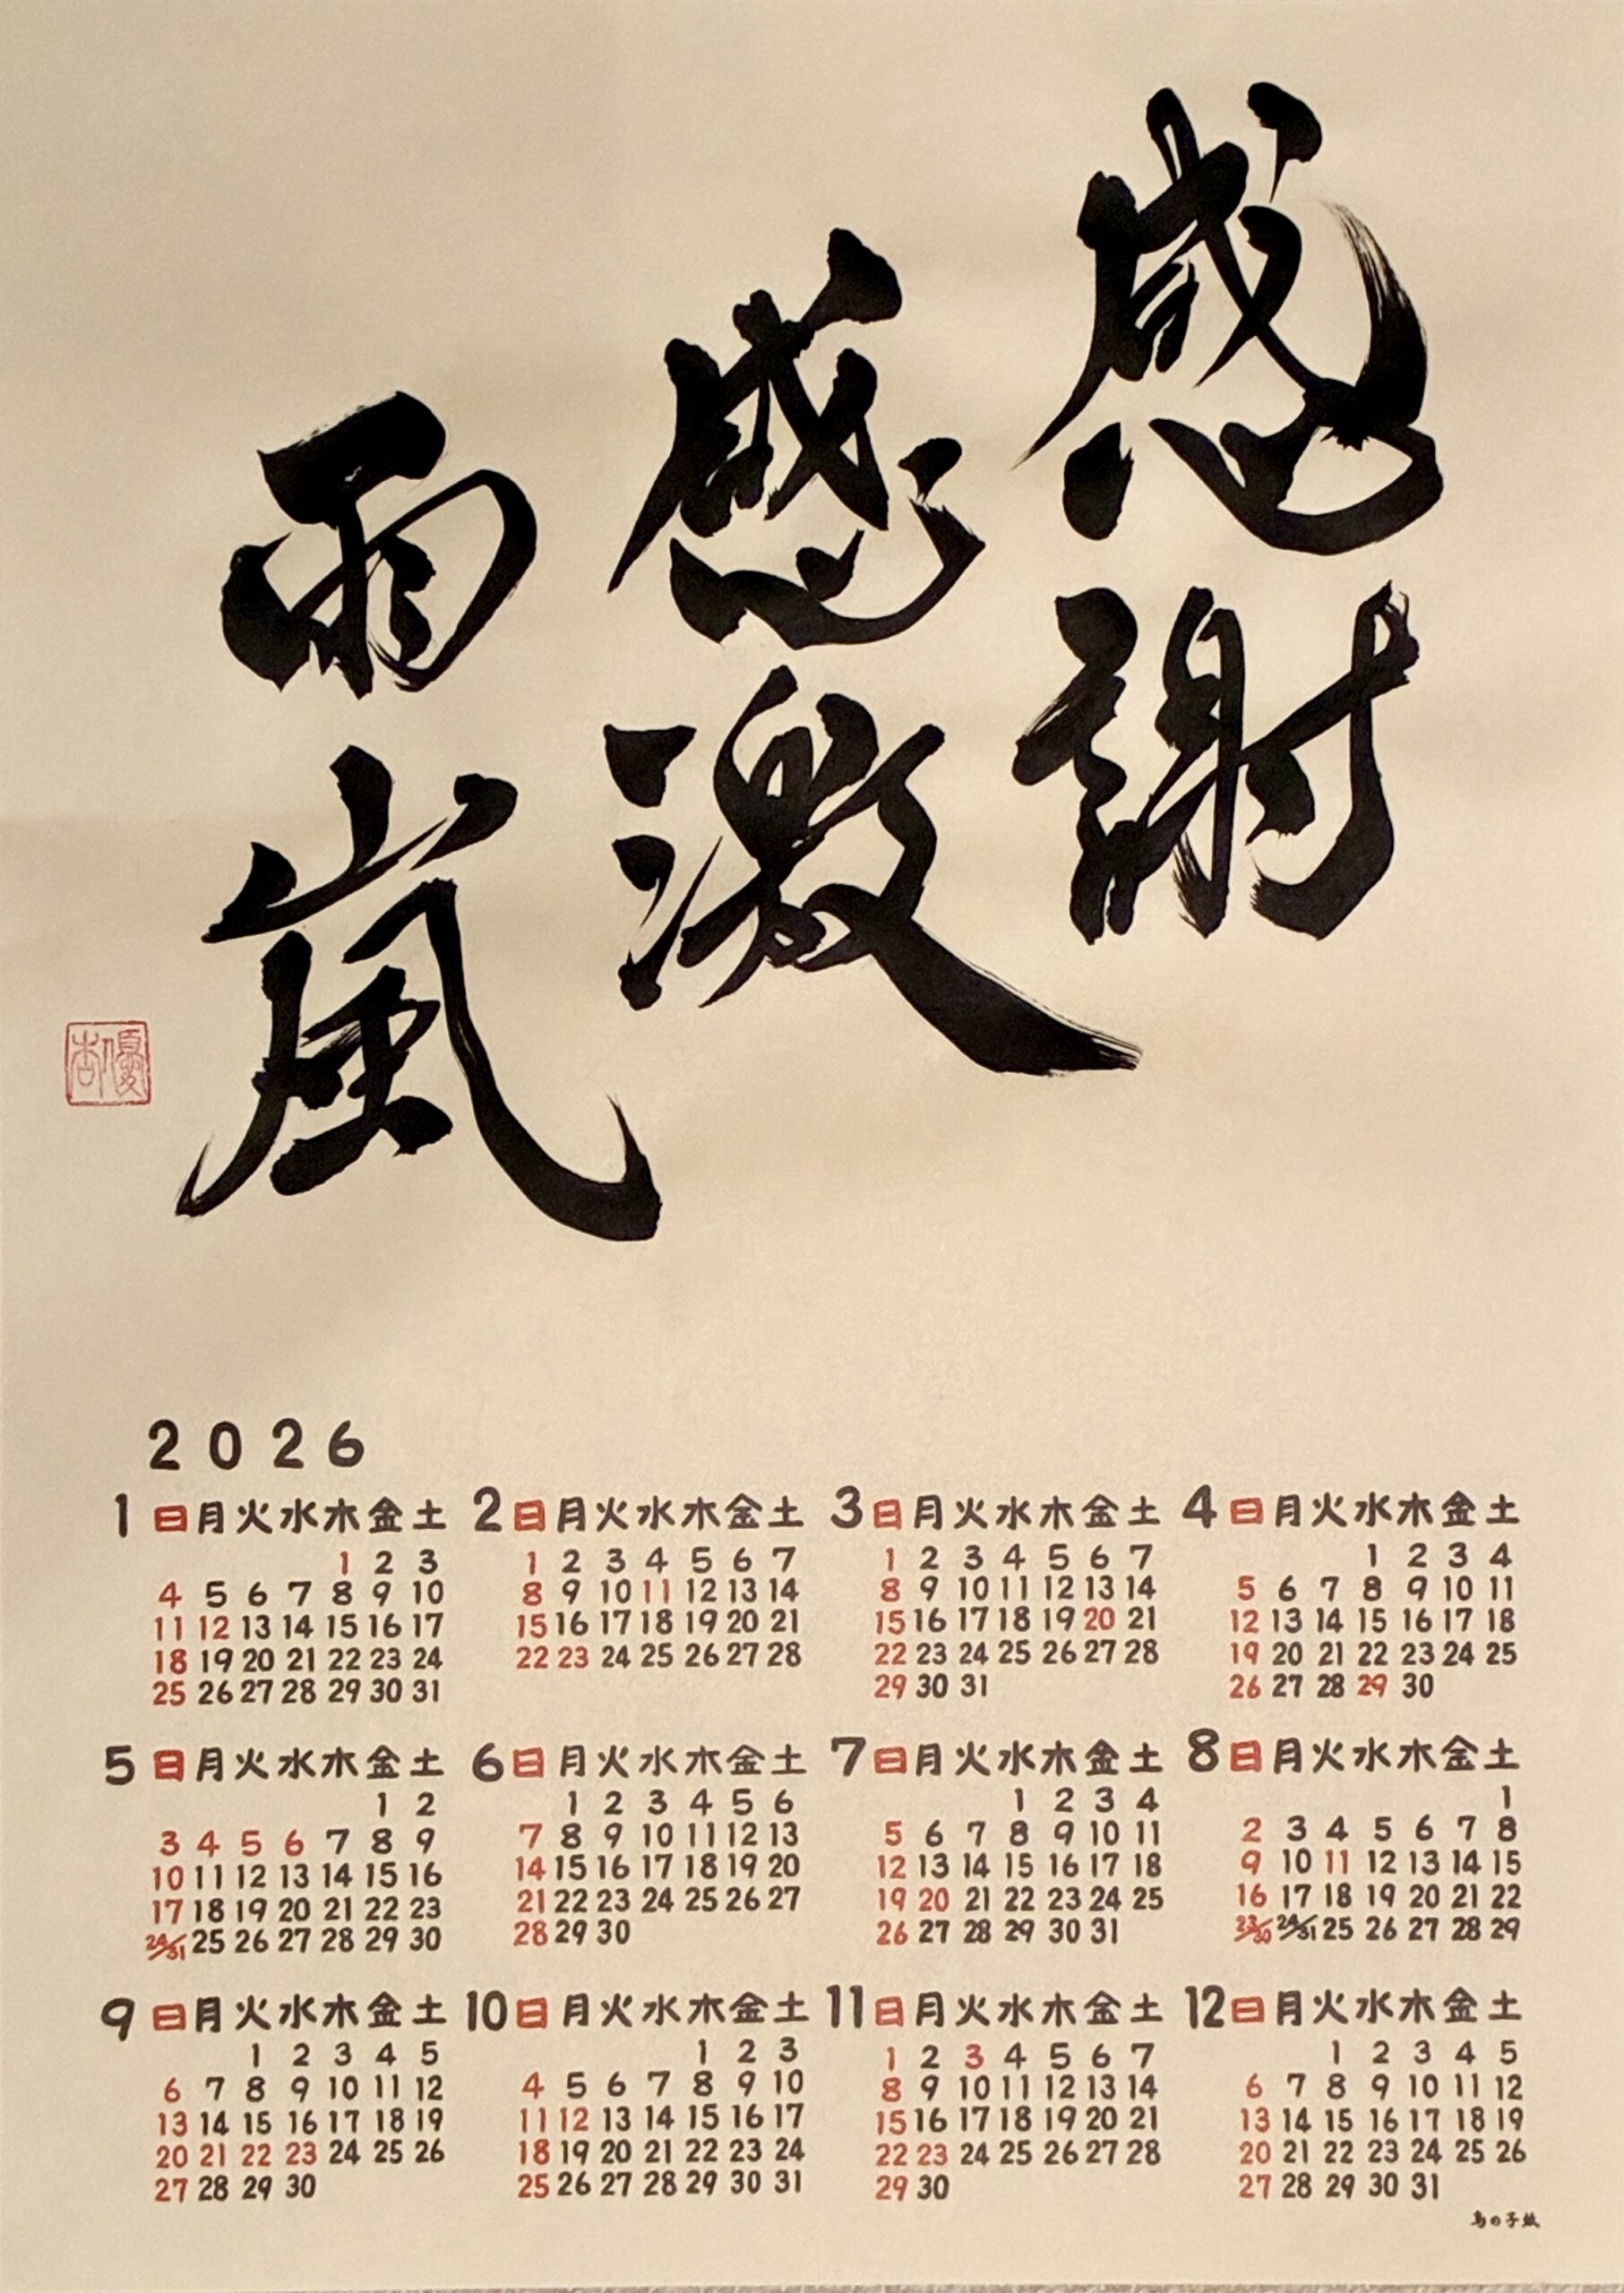 感謝
感激
雨嵐
優杏
2026
1 日月火水木金土
1 2 3
4 5 6 7 8 9 10
11 12 13 14 15 16 17
18 19 20 21 22 23 24
25 26 27 28 29 30 31
2 日月火水木金土
1 2 3 4 5 6 7
8 9 10 11 12 13 14
15 16 17 18 19 20 21
22 23 24 25 26 27 28
3 日月火水木金土
1 2 3 4 5 6 7
8 9 10 11 12 13 14
15 16 17 18 19 20 21
22 23 24 25 26 27 28
29 30 31
4 日月火水木金土
1 2 3 4
5 6 7 8 9 10 11
12 13 14 15 16 17 18
19 20 21 22 23 24 25
26 27 28 29 30
5 日月火水木金土
1 2
3 4 5 6 7 8 9
10 11 12 13 14 15 16
17 18 19 20 21 22 23
24/31 25 26 27 28 29 30
6 日月火水木金土
1 2 3 4 5 6
7 8 9 10 11 12 13
14 15 16 17 18 19 20
21 22 23 24 25 26 27
28 29 30
7 日月火水木金土
1 2 3 4
5 6 7 8 9 10 11
12 13 14 15 16 17 18
19 20 21 22 23 24 25
26 27 28 29 30 31
8 日月火水木金土
1
2 3 4 5 6 7 8
9 10 11 12 13 14 15
16 17 18 19 20 21 22
23/30 24/31 25 26 27 28 29
9 日月火水木金土
1 2 3 4 5
6 7 8 9 10 11 12
13 14 15 16 17 18 19
20 21 22 23 24 25 26
27 28 29 30
10 日月火水木金土
1 2 3
4 5 6 7 8 9 10
11 12 13 14 15 16 17
18 19 20 21 22 23 24
25 26 27 28 29 30 31
11 日月火水木金土
1 2 3 4 5 6 7
8 9 10 11 12 13 14
15 16 17 18 19 20 21
22 23 24 25 26 27 28
29 30
12 日月火水木金土
1 2 3 4 5
6 7 8 9 10 11 12
13 14 15 16 17 18 19
20 21 22 23 24 25 26
27 28 29 30 31
鳥の子紙